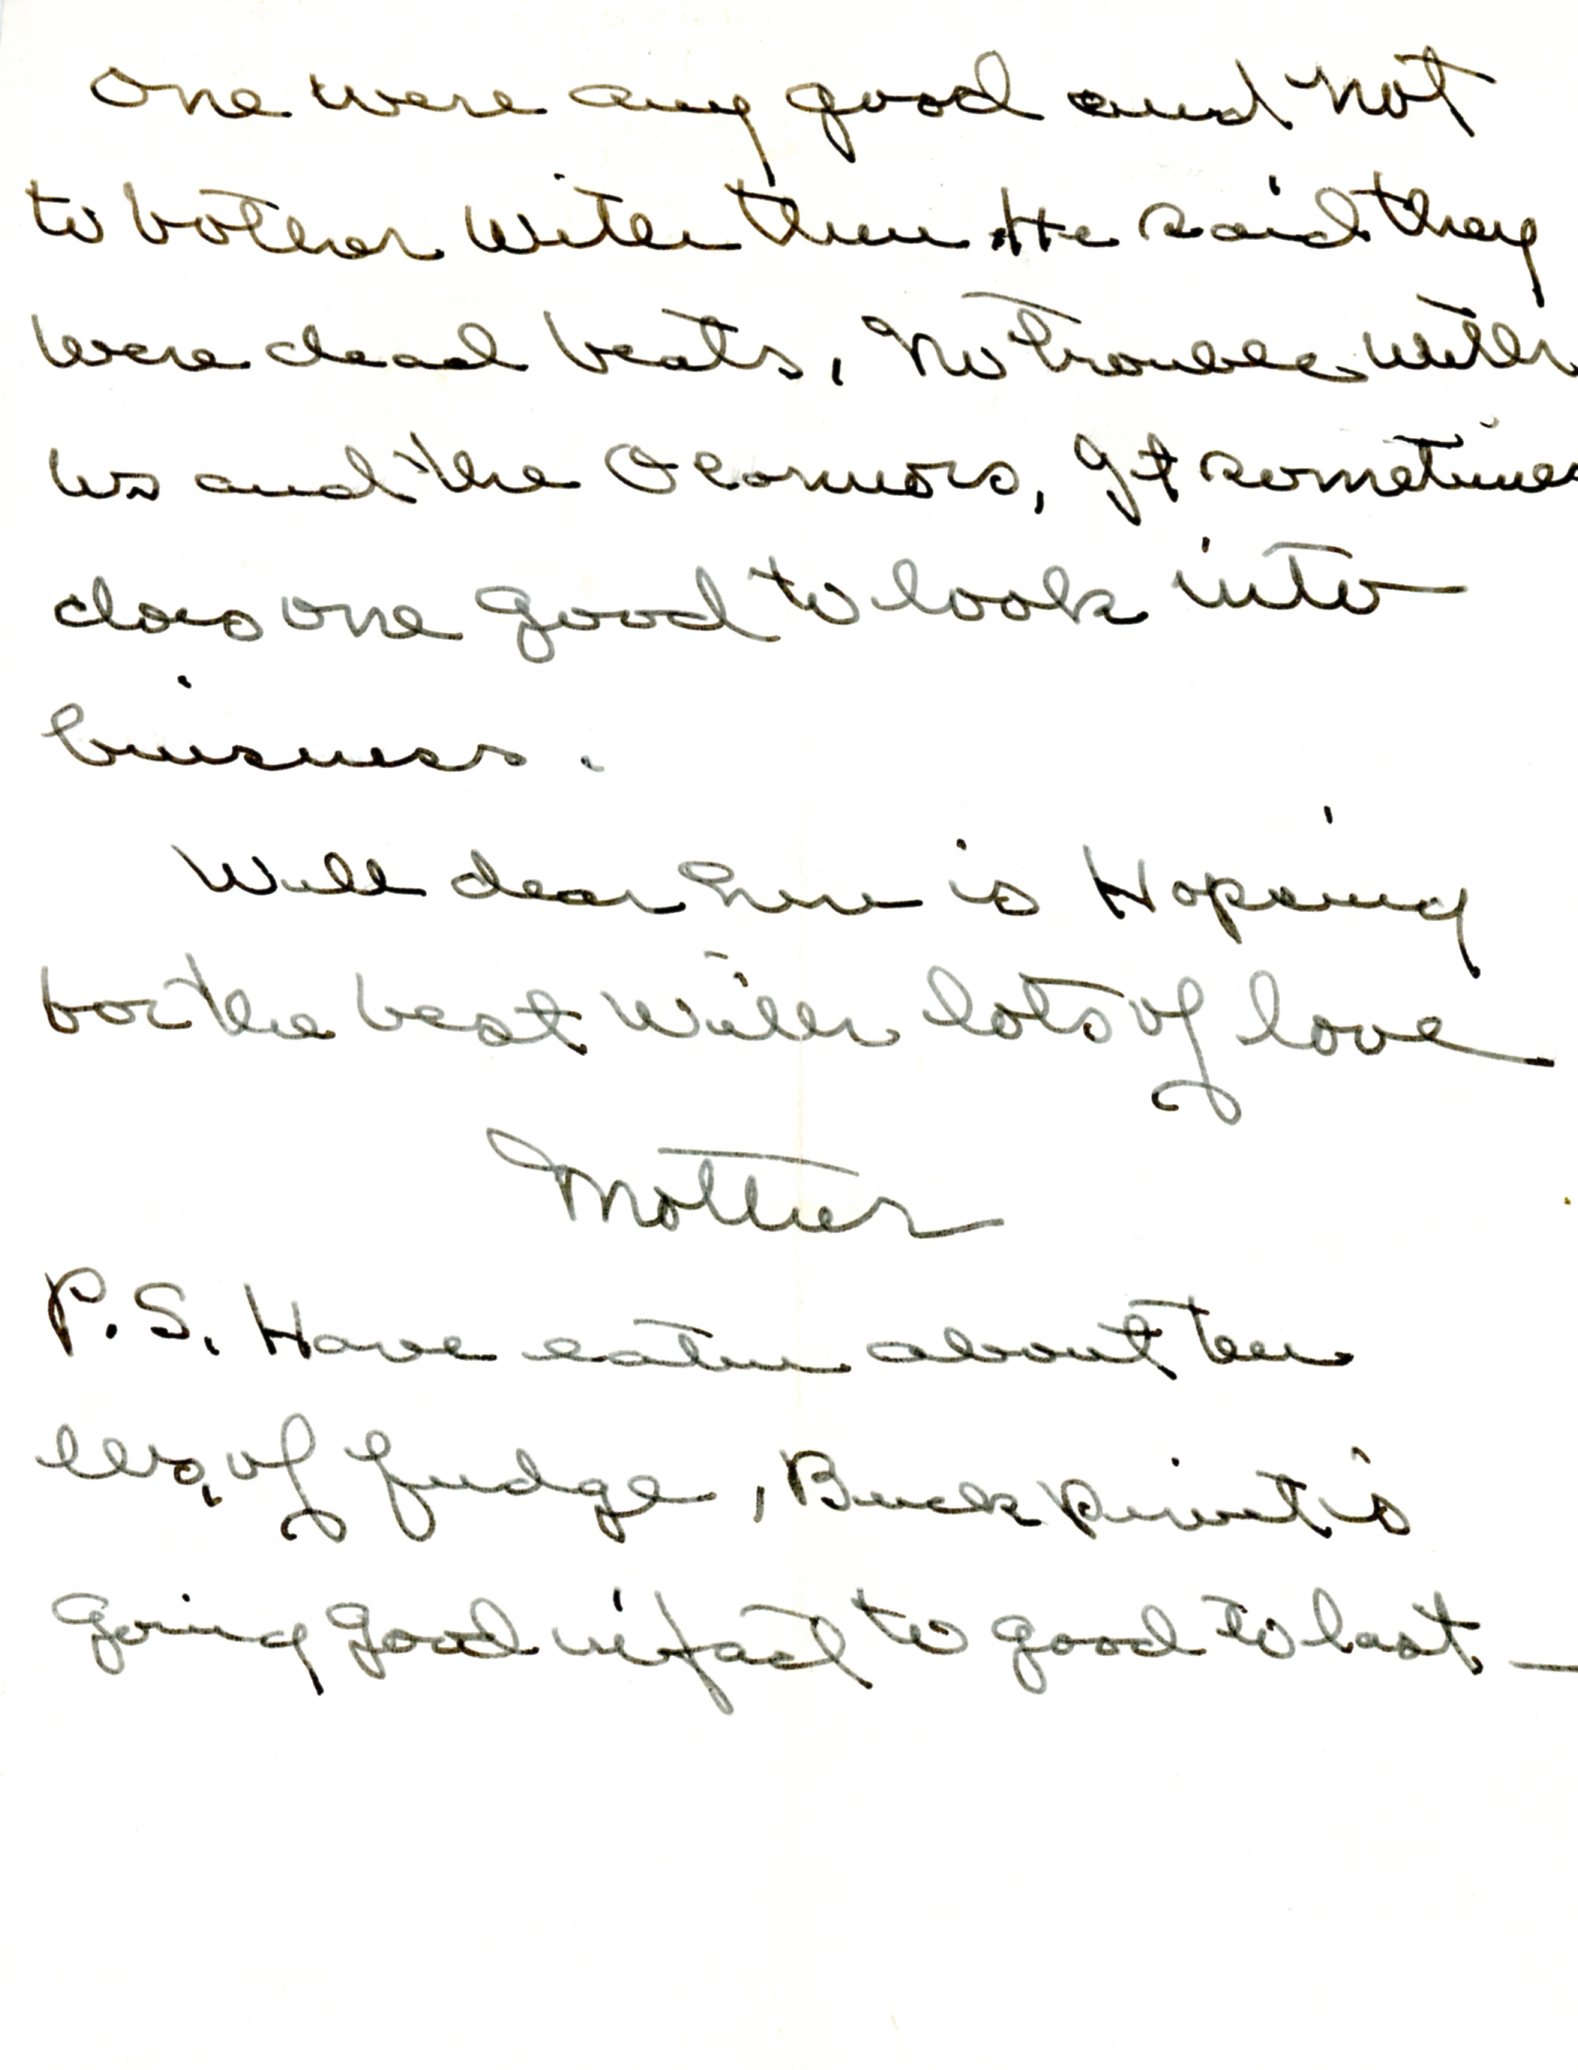 one were any good and not
to bother with them. He said they
were dead beats, No trouble with
us and the OConnors, It sometimes
does one good to look into
buisness.
Well dear here is Hopeing
for the best with lots of love
Mother
P.S. Have eaten about ten
lbs, of fudge, Buck is
going good infact to good to last —